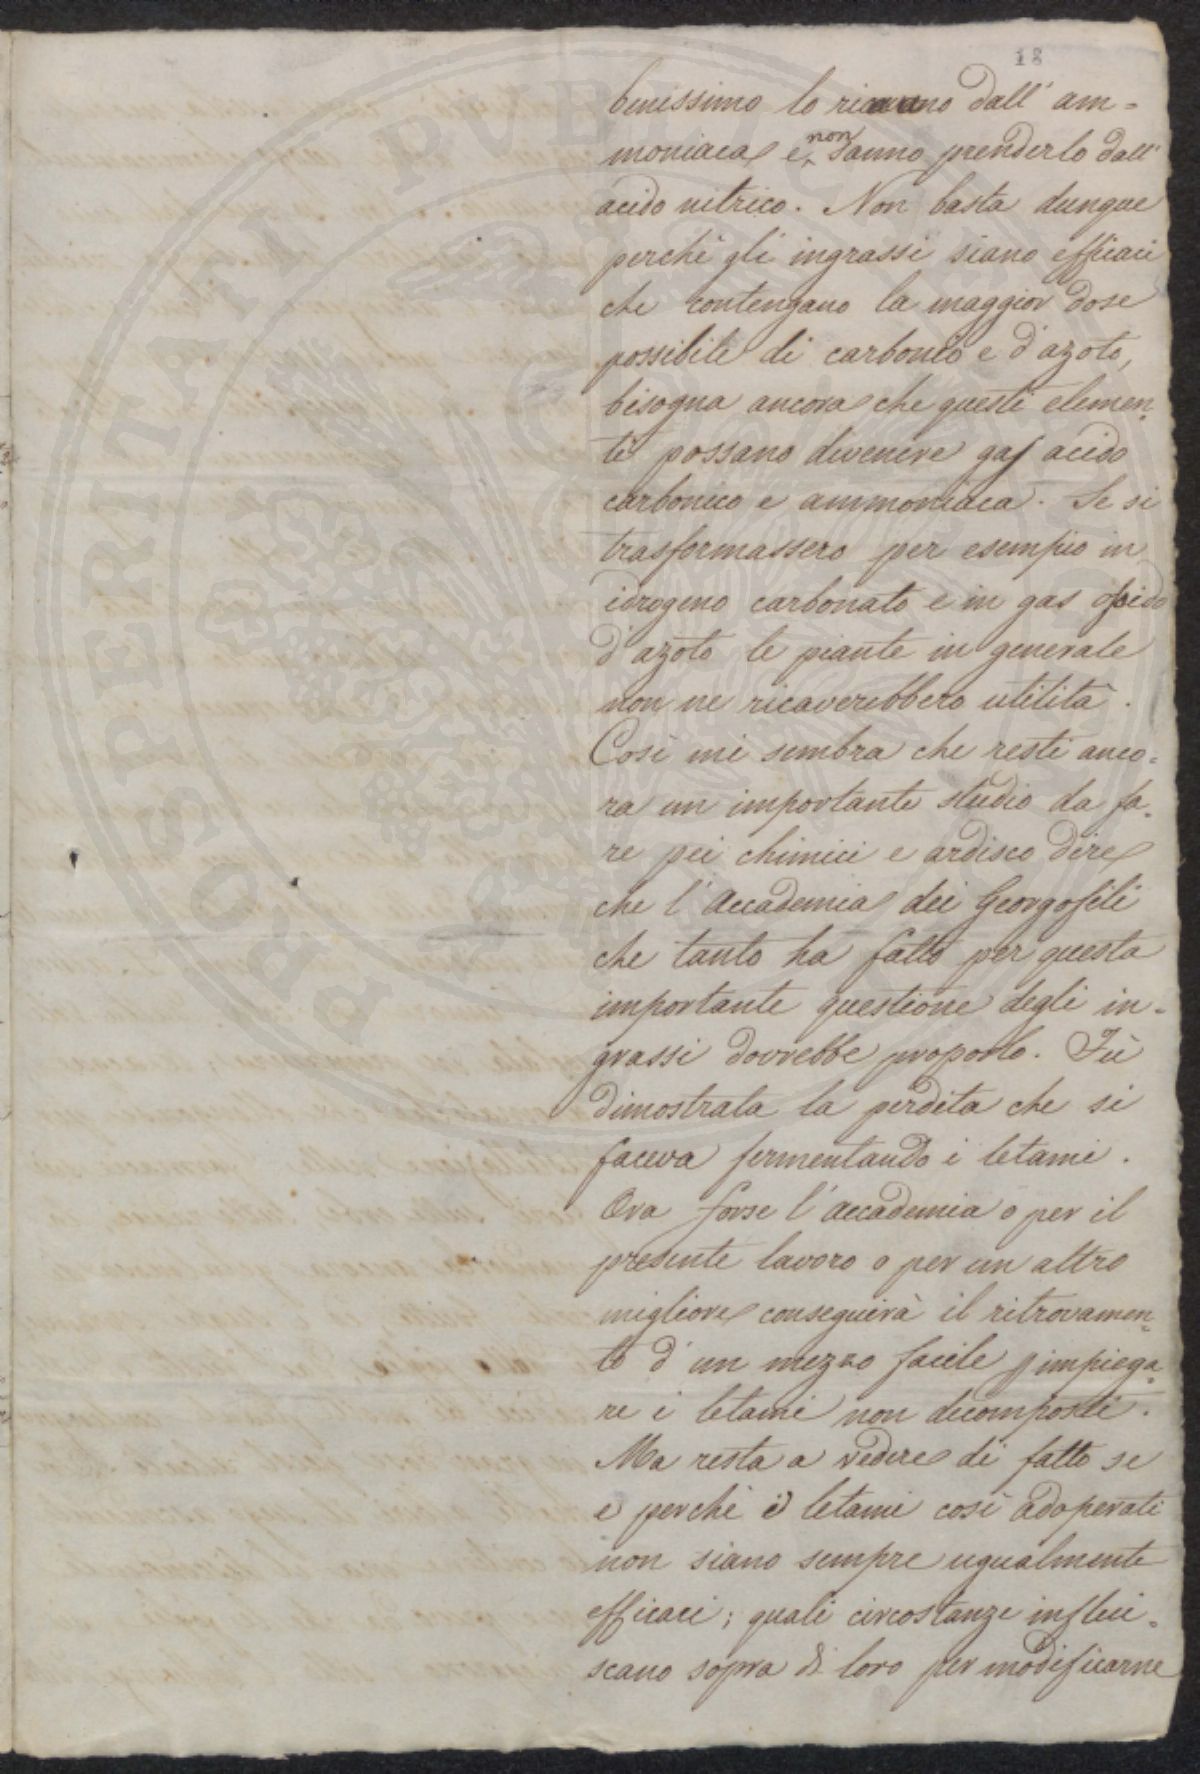 18
benissimo lo ricavano dall' am=
moniaca e non sanno prenderlo dall'
acido nitrico. Non basta dunque
perchè gli ingrassi siano efficaci
che contengano la maggior dose
possibile di carbonio e d'azoto,
bisogna ancora che questi elemen=
ti possano divenire gas acido
carbonico e ammoniaca. Se si
trasformassero per esempio in
idrogeno carbonato e in gas ossido
d'azoto le piante in generale
non ne ricaverebbero utilità.
Così mi sembra che resti anco=
ra un importante studio da fa=
re pei chimici e ardisco dire
che l'Accademia dei Georgofili
che tanto ha fatto per questa
importante questione degli in=
grassi dovrebbe proporlo. Fù
dimostrata la perdita che si
faceva fermentando i letami.
Ora forse l'accademia o per il
presente lavoro o per un altro
migliore conseguirà il ritrovamen=
to d'un mezzo facile impiega=
re i letami non decomposti.
Ma resta a vedere di fatto se
e perchè i letami così adoperati
non siano sempre ugualmente
efficaci; quali circostanze influi=
scano sopra di loro per modificarne
PROSPERITATI PVBLICAE